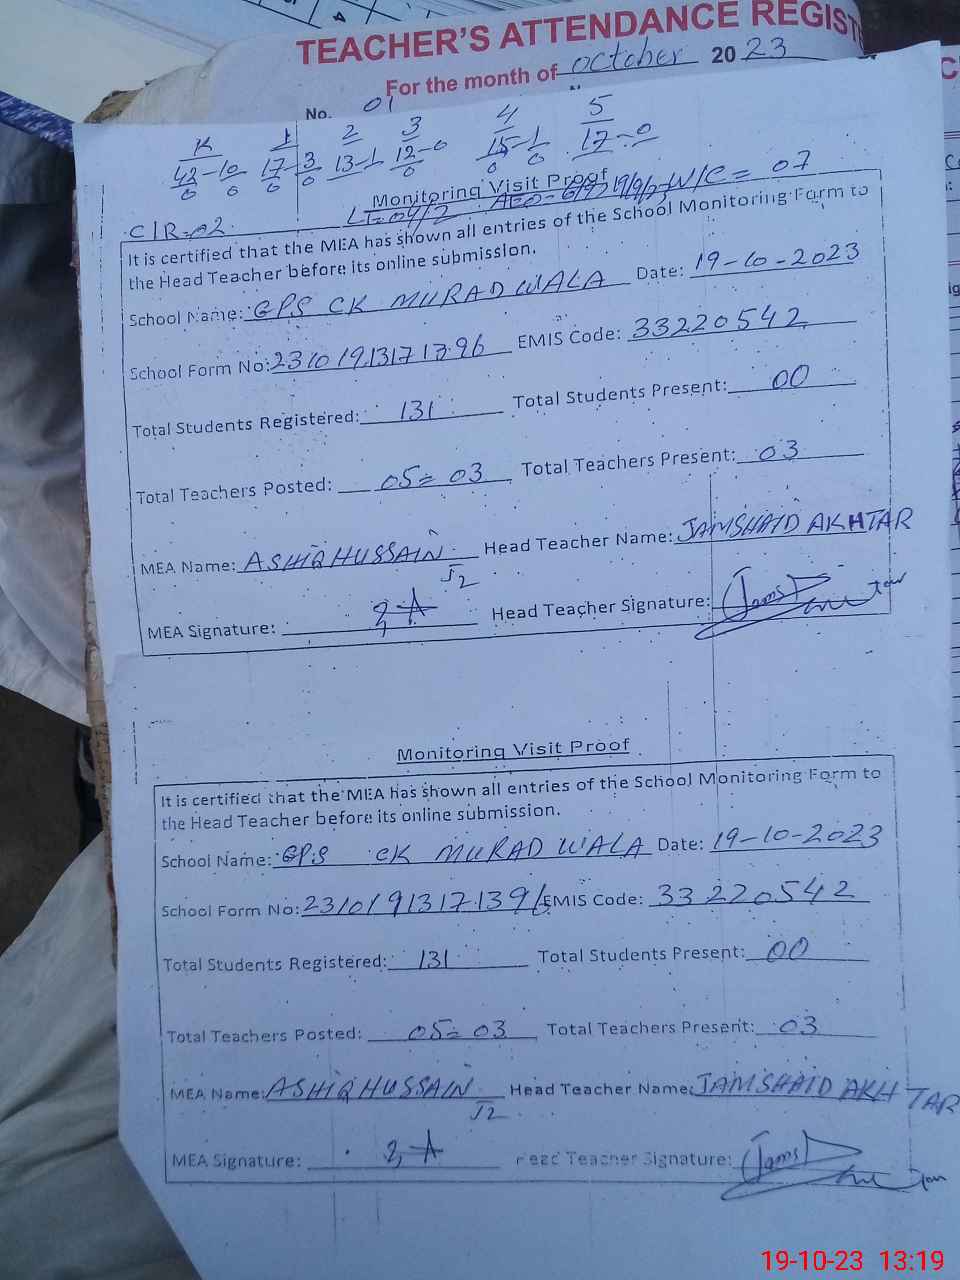 TEACHER'S ATTENDANCE REGIST
For the month of October 2023
No. 01
K 1 2 3 4 5
43-10 17-3 13-1 12-0 15-1 17-0
0 0 0 0 0 0 0
Monitoring Visit Proof
C/R=02. W/C = 07
It is certified that the MEA has shown all entries of the School Monitoring Form to
the Head Teacher before its online submission.
School Name: GPS CK MURAD WALA Date: 19-10-2023
School Form No: EMIS Code: 33220542
Total Students Registered: 131 Total Students Present: 00
Total Teachers Posted: 05=03 Total Teachers Present: 03
MEA Name: ASHIQ HUSSAIN Head Teacher Name: JAMSHAID AKHTAR
MEA Signature: Head Teacher Signature:
Monitoring Visit Proof
It is certified that the MEA has shown all entries of the School Monitoring Form to
the Head Teacher before its online submission.
School Name: GPS CK MURAD WALA Date: 19-10-2023
School Form No: EMIS Code: 33220542
Total Students Registered: 131 Total Students Present: 00
Total Teachers Posted: 05=03 Total Teachers Present: 03
MEA Name: ASHIQ HUSSAIN Head Teacher Name: JAMSHAID AKHTAR
MEA Signature: Head Teacher Signature:
19-10-23 13:19